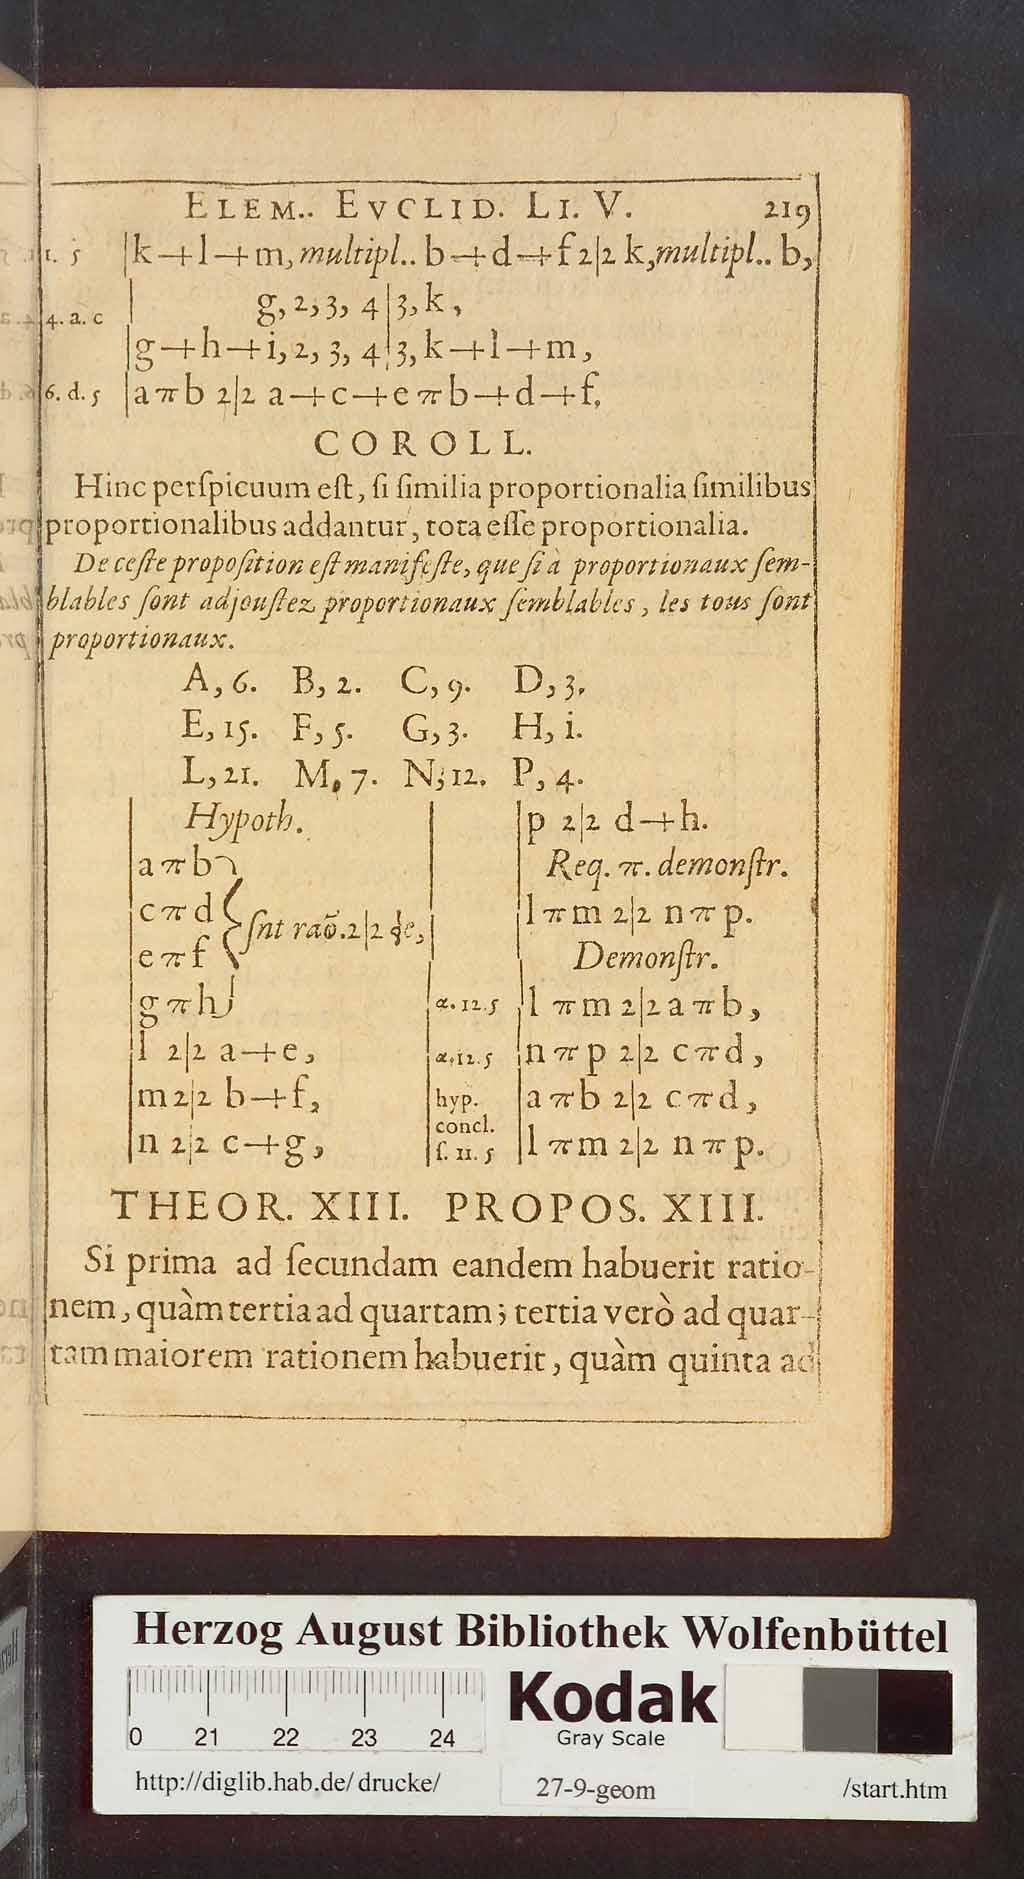 ELEM.. EVCLID. LI. V. 219
1. 5 | k+l+m, multipl.. b+d+f 2|2 k, multipl.. b,
4. a. c | g, 2, 3, 4 | 3, k,
|g+h+i, 2, 3, 4 | 3, k+l+m,
6. d. 5 | a π b 2|2 a+c+e π b+d+f,
COROLL.
Hinc perſpicuum eſt, ſi ſimilia proportionalia ſimilibus
proportionalibus addantur, tota eſſe proportionalia.
De ceſte propoſition eſt manifeſte, que ſi à proportionaux ſem-
blables ſont adjouſtez proportionaux ſemblables, les tous ſont
proportionaux.
A, 6. B, 2. C, 9. D, 3.
E, 15. F, 5. G, 3. H, i.
L, 21. M, 7. N, 12. P, 4.
Hypoth.
a π b
c π d
ſnt raõ. 2|2
e π f
g π h
l 2|2 a+e,
m 2|2 b+f,
n 2|2 c+g,
p 2|2 d+h.
Req. π. demonſtr.
l π m 2|2 n π p.
Demonſtr.
α. 12. 5 | l π m 2|2 a π b,
α. 12. 5 | n π p 2|2 c π d,
hyp. | a π b 2|2 c π d,
concl.
f. 11. 5 | l π m 2|2 n π p.
THEOR. XIII. PROPOS. XIII.
Si prima ad ſecundam eandem habuerit ratio-
nem, quàm tertia ad quartam; tertia verò ad quar-
tam maiorem rationem habuerit, quàm quinta ad
Herzog August Bibliothek Wolfenbüttel
0 21 22 23 24
Kodak
Gray Scale
http://diglib.hab.de/drucke/ 27-9-geom /start.htm